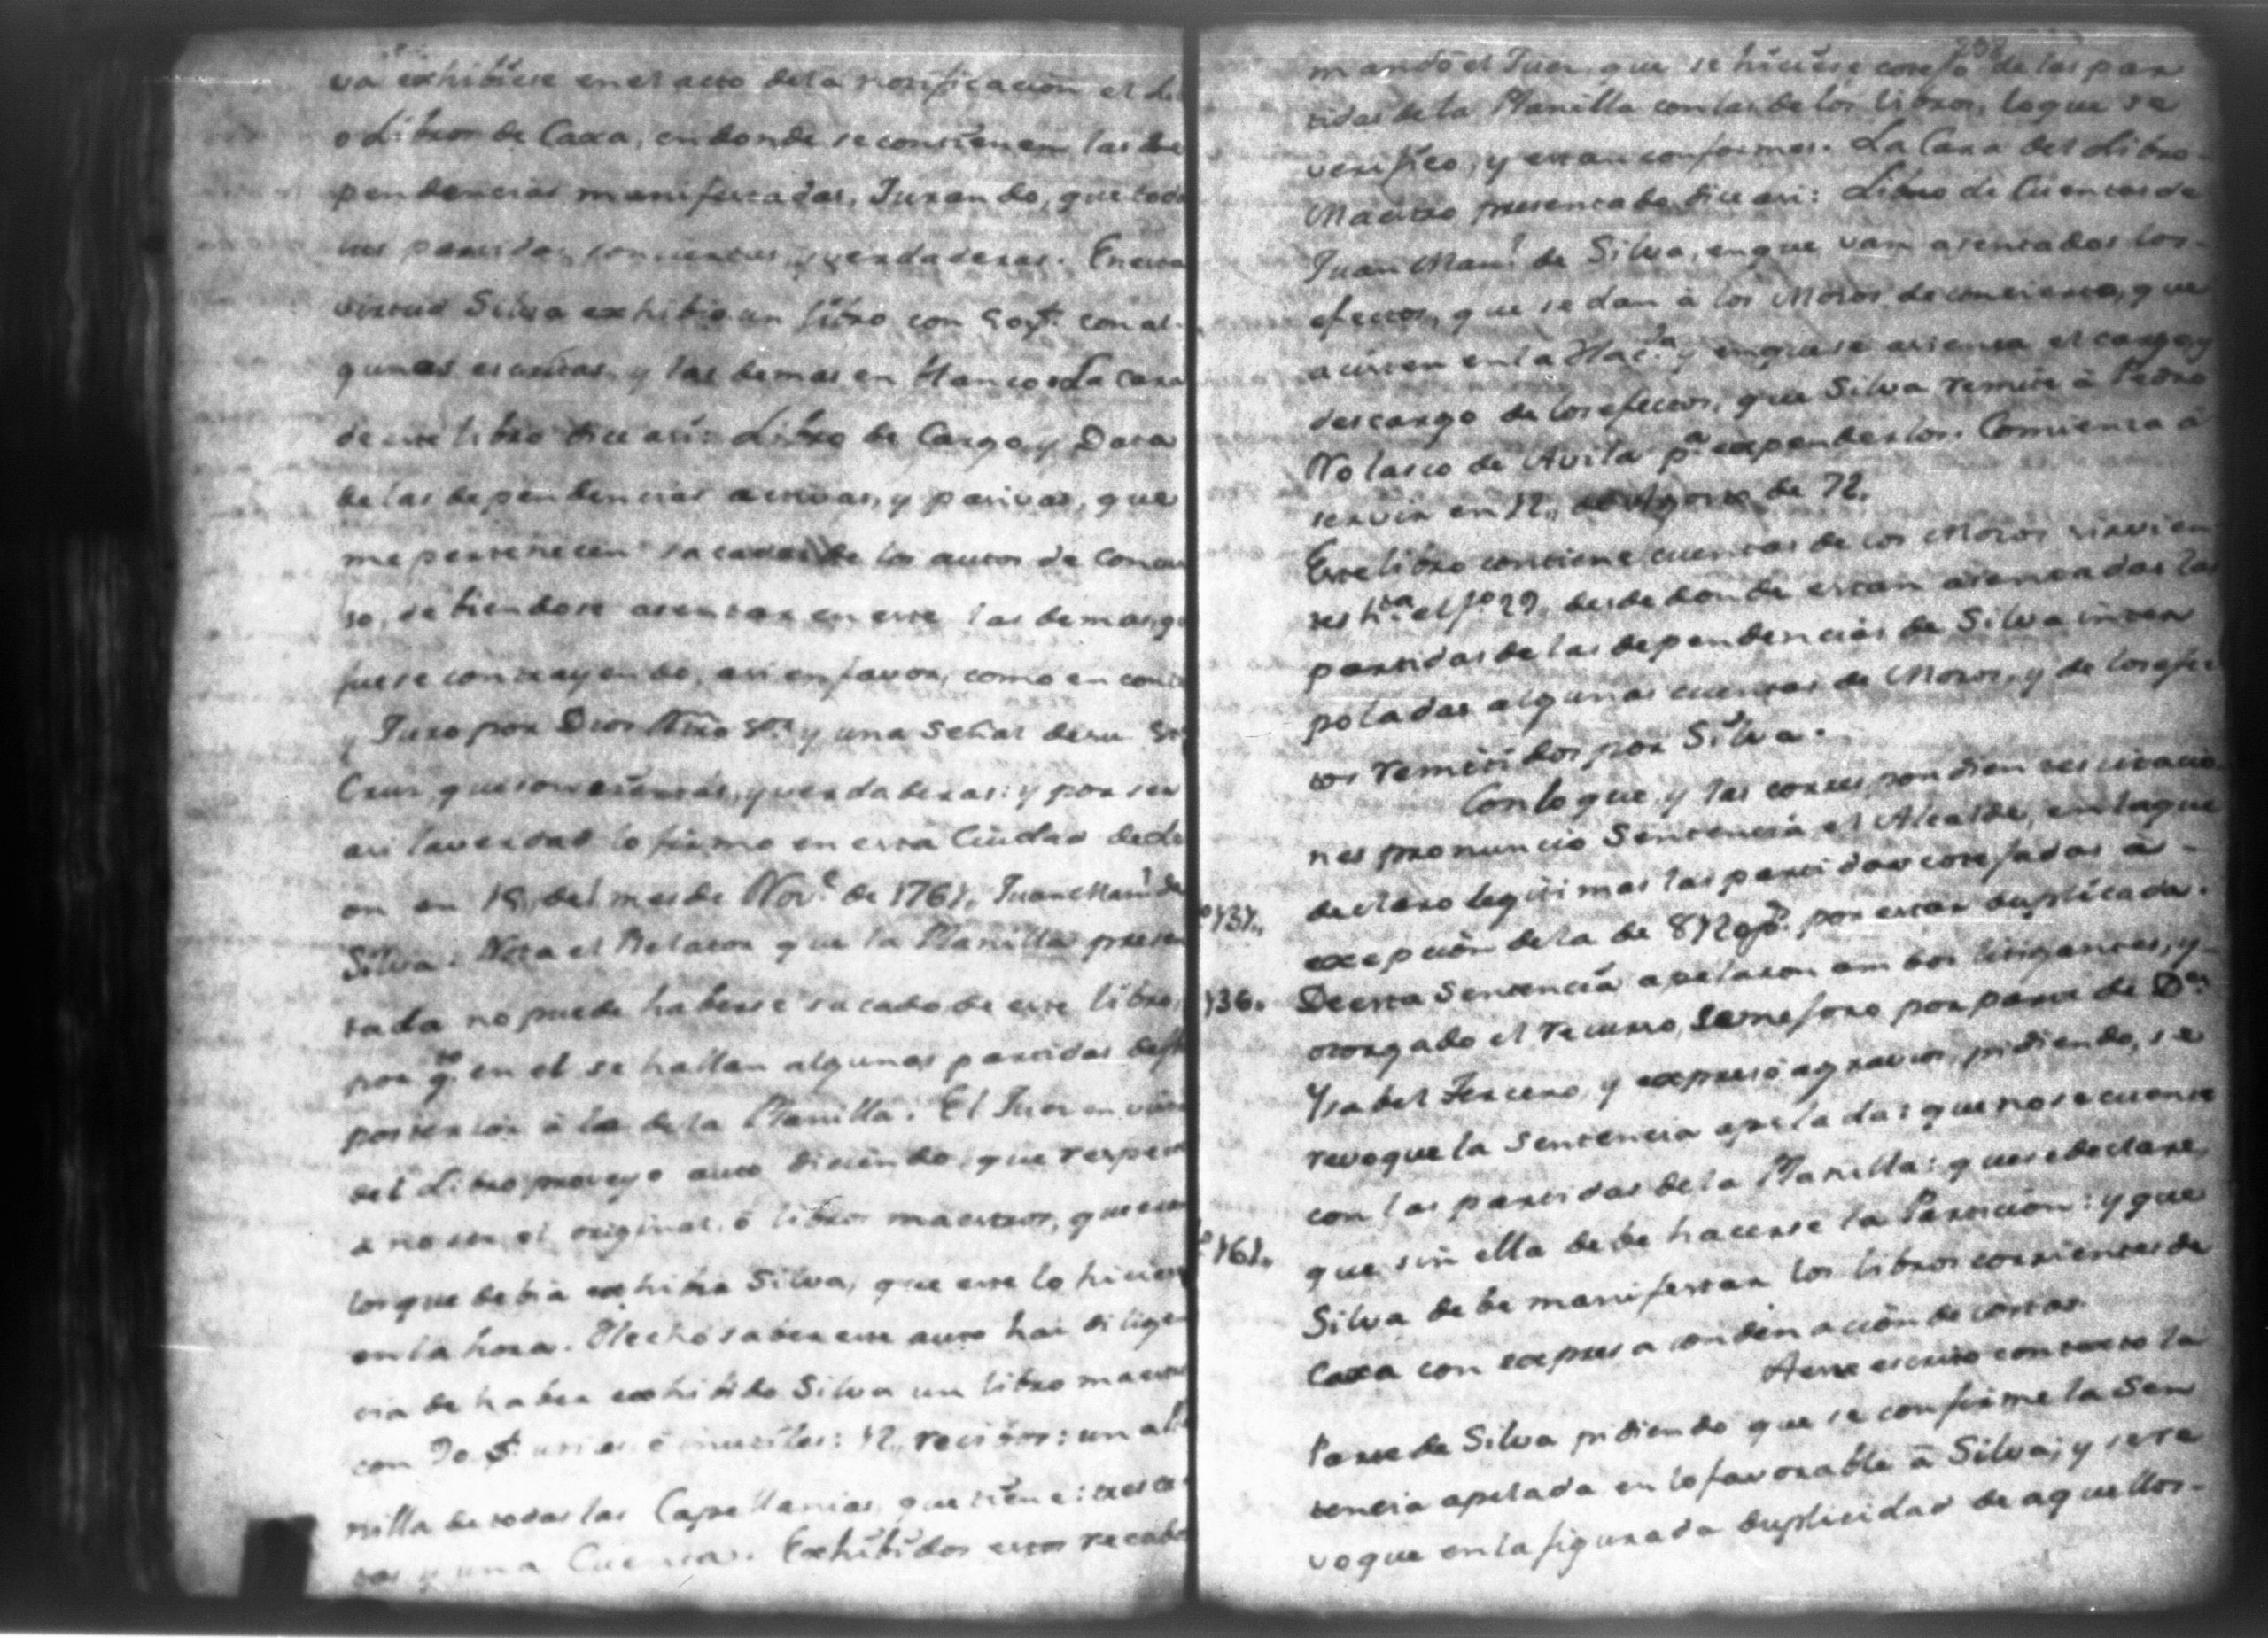 va exhibiese en el acto dela notificacion el Li
o Libros de Caxa, en donde se contienen las de
pendencias manifestadas, Jurando, que toda
sus partidas son ciertas y verdaderas. En esta
virtud Silva exhibio un libro con con al
gunas escritas y las demas en blanco. La caxa
de este libro dice asi: Libro de Cargo, y Data
de las dependencias activas, y pasivas, que
me pertenecen sacadas de los autos de Concur
so, debiendose asentar en este las demas, q
fuese contrayendo, asi en favor, como en cont
y Juro por Dios Ntro Sr. y una Señal de su Sta
Cruz, que son ciertas, y verdaderas: y por ser
asi la verdad lo firmo en esta Ciudad de Le
on en 19,, del mes de Nov.e de 1767,, Juan Man.l de
Silva. Nota el Relator que la Planilla presen
tada no puede haberse sacado de este libro,
por q.e en el se hallan algunas partidas
posterior à la de la Planilla. El Juez en vista
del Libro proveyo auto diciendo, que respecto
a no ser el original, ó libros maestros, que eran
los que debia exhibir Silva, que este lo hiciese
en la hora. Hecho saber este auto hai diligen
cia de haber exhibido Silva un libro maestro
con 90 f. utiles è inutiles: 12,, recibos: un
nilla de todas las Capellanias, que tiene: tres car
tas y una Cuenta. Exhibidos estos recado
mandò el Juez que se hiciese cotejo de las par
tidas de la Planilla con las de los libros, lo que se
verifico, y estan conformes. La Caxa del Libro
Maestro presentado dice asi: Libro de Cuentas de
Juan Man.l de Silva, en que van asentados los
efectos, que se dan à los Mozos de concierto, que
asisten en la Hac.da y en que se asienta el cargo y
descargo de los efectos, que Silva remite à Pedro
Nolasco de Avila p.a expenderlos. Comienza à
servir en 12,, de Agosto de 72.
Este libro contiene cuentas de los Mozos sirvien
tes h.ta el f.o 29,, desde donde estan asentadas las
partidas de las dependencias de Silva inter
poladas algunas cuentas de Mozos, y de los efec
tos remitidos por Silva.
Con lo que y las correspondientes citacio
nes pronunciò Sentencia el Alcalde, en la que
declaro legitimas las partidas cotejadas à
137,,
excepcion de la de 812 ps. por estar duplicada.
136. De esta Sentencia apelaron ambos litigantes, y
otorgado el recurso, se mejoro por parte de D.a
Ysabel Tercero, y expresó agravios, pidiendo, se
revoque la Sentencia apelada: que no se cuente
con las partidas de la Planilla: que se declare,
161,, que sin ella debe hacerse la Particion: y que
Silva debe manifestar los libros corrientes de
Caxa con expresa condenacion de costas.
A este escrito contexto la
Parte de Silva pidiendo que se confirme la Sen
tencia apelada en lo favorable à Silva; y se re
voque en la figurada duplicidad de aquellos